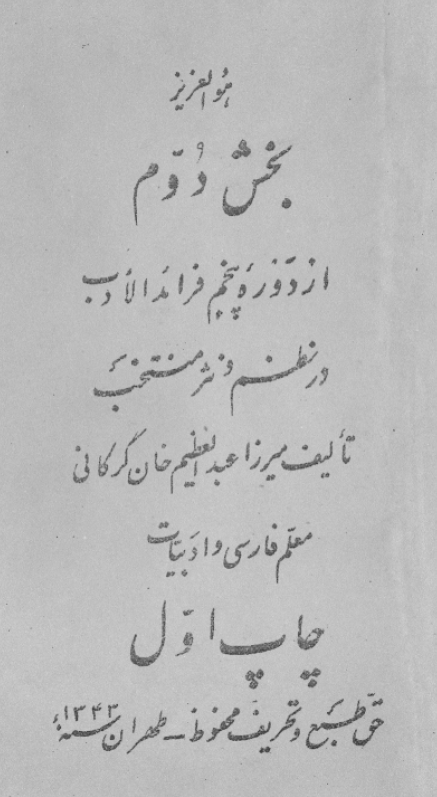 هوالعزیز
بخش دُوّم
از دَوْرهٔ پنجم فرائد الأدب
در نظم و نثر منتخب
تألیف میرزا عبدالعظیم خان گرکانی
معلّم فارسی و ادبیّات
چاپ اوّل
حقّ طبع و تحریف محفوظ ـ طهران سنهٔ ۱۳۴۳